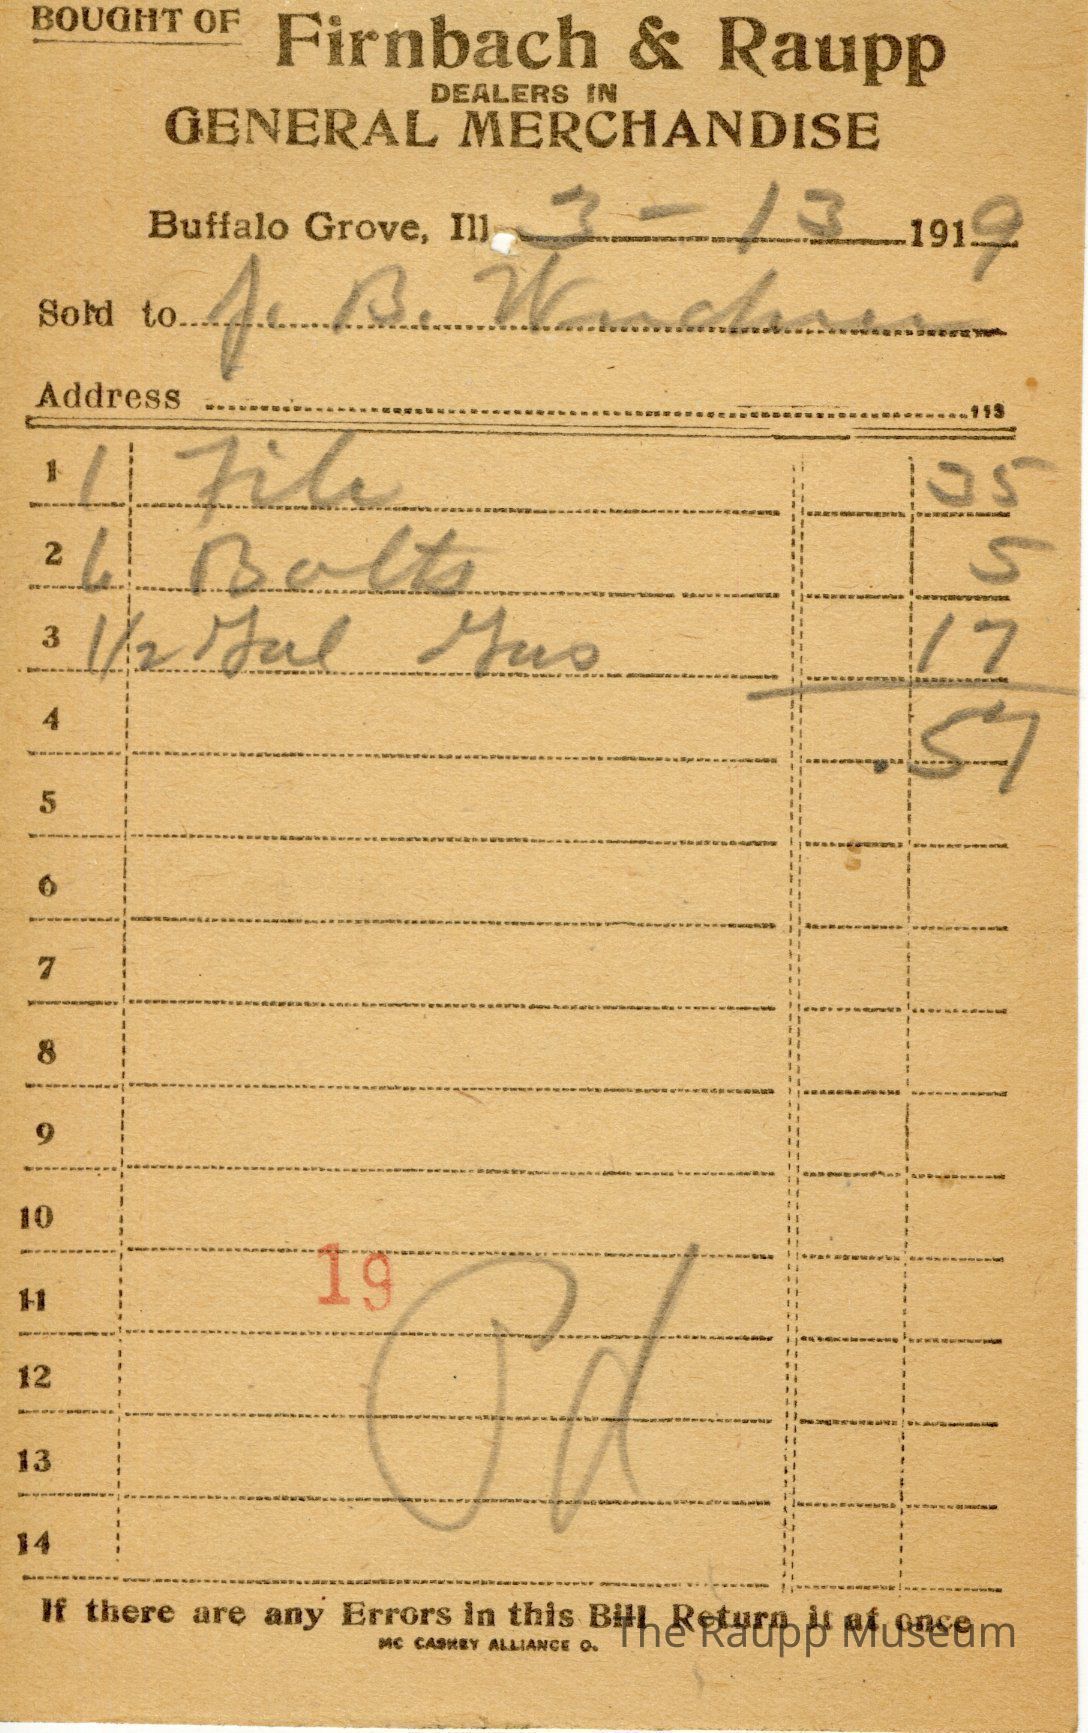 BOUGHT OF Firnbach & Raupp
DEALERS IN
GENERAL MERCHANDISE
Buffalo Grove, Ill. 3 - 13 1919
Sold to J. B.
Address 113
1 1 File 35
2 6 Bolts 5
3 1/2 Gal Gas 17
4 .57
5
6
7
8
9
10
19
11
12
Pd
13
14
If there are any Errors in this Bill Return it at once
MC CASKEY ALLIANCE O.
The Raupp Museum